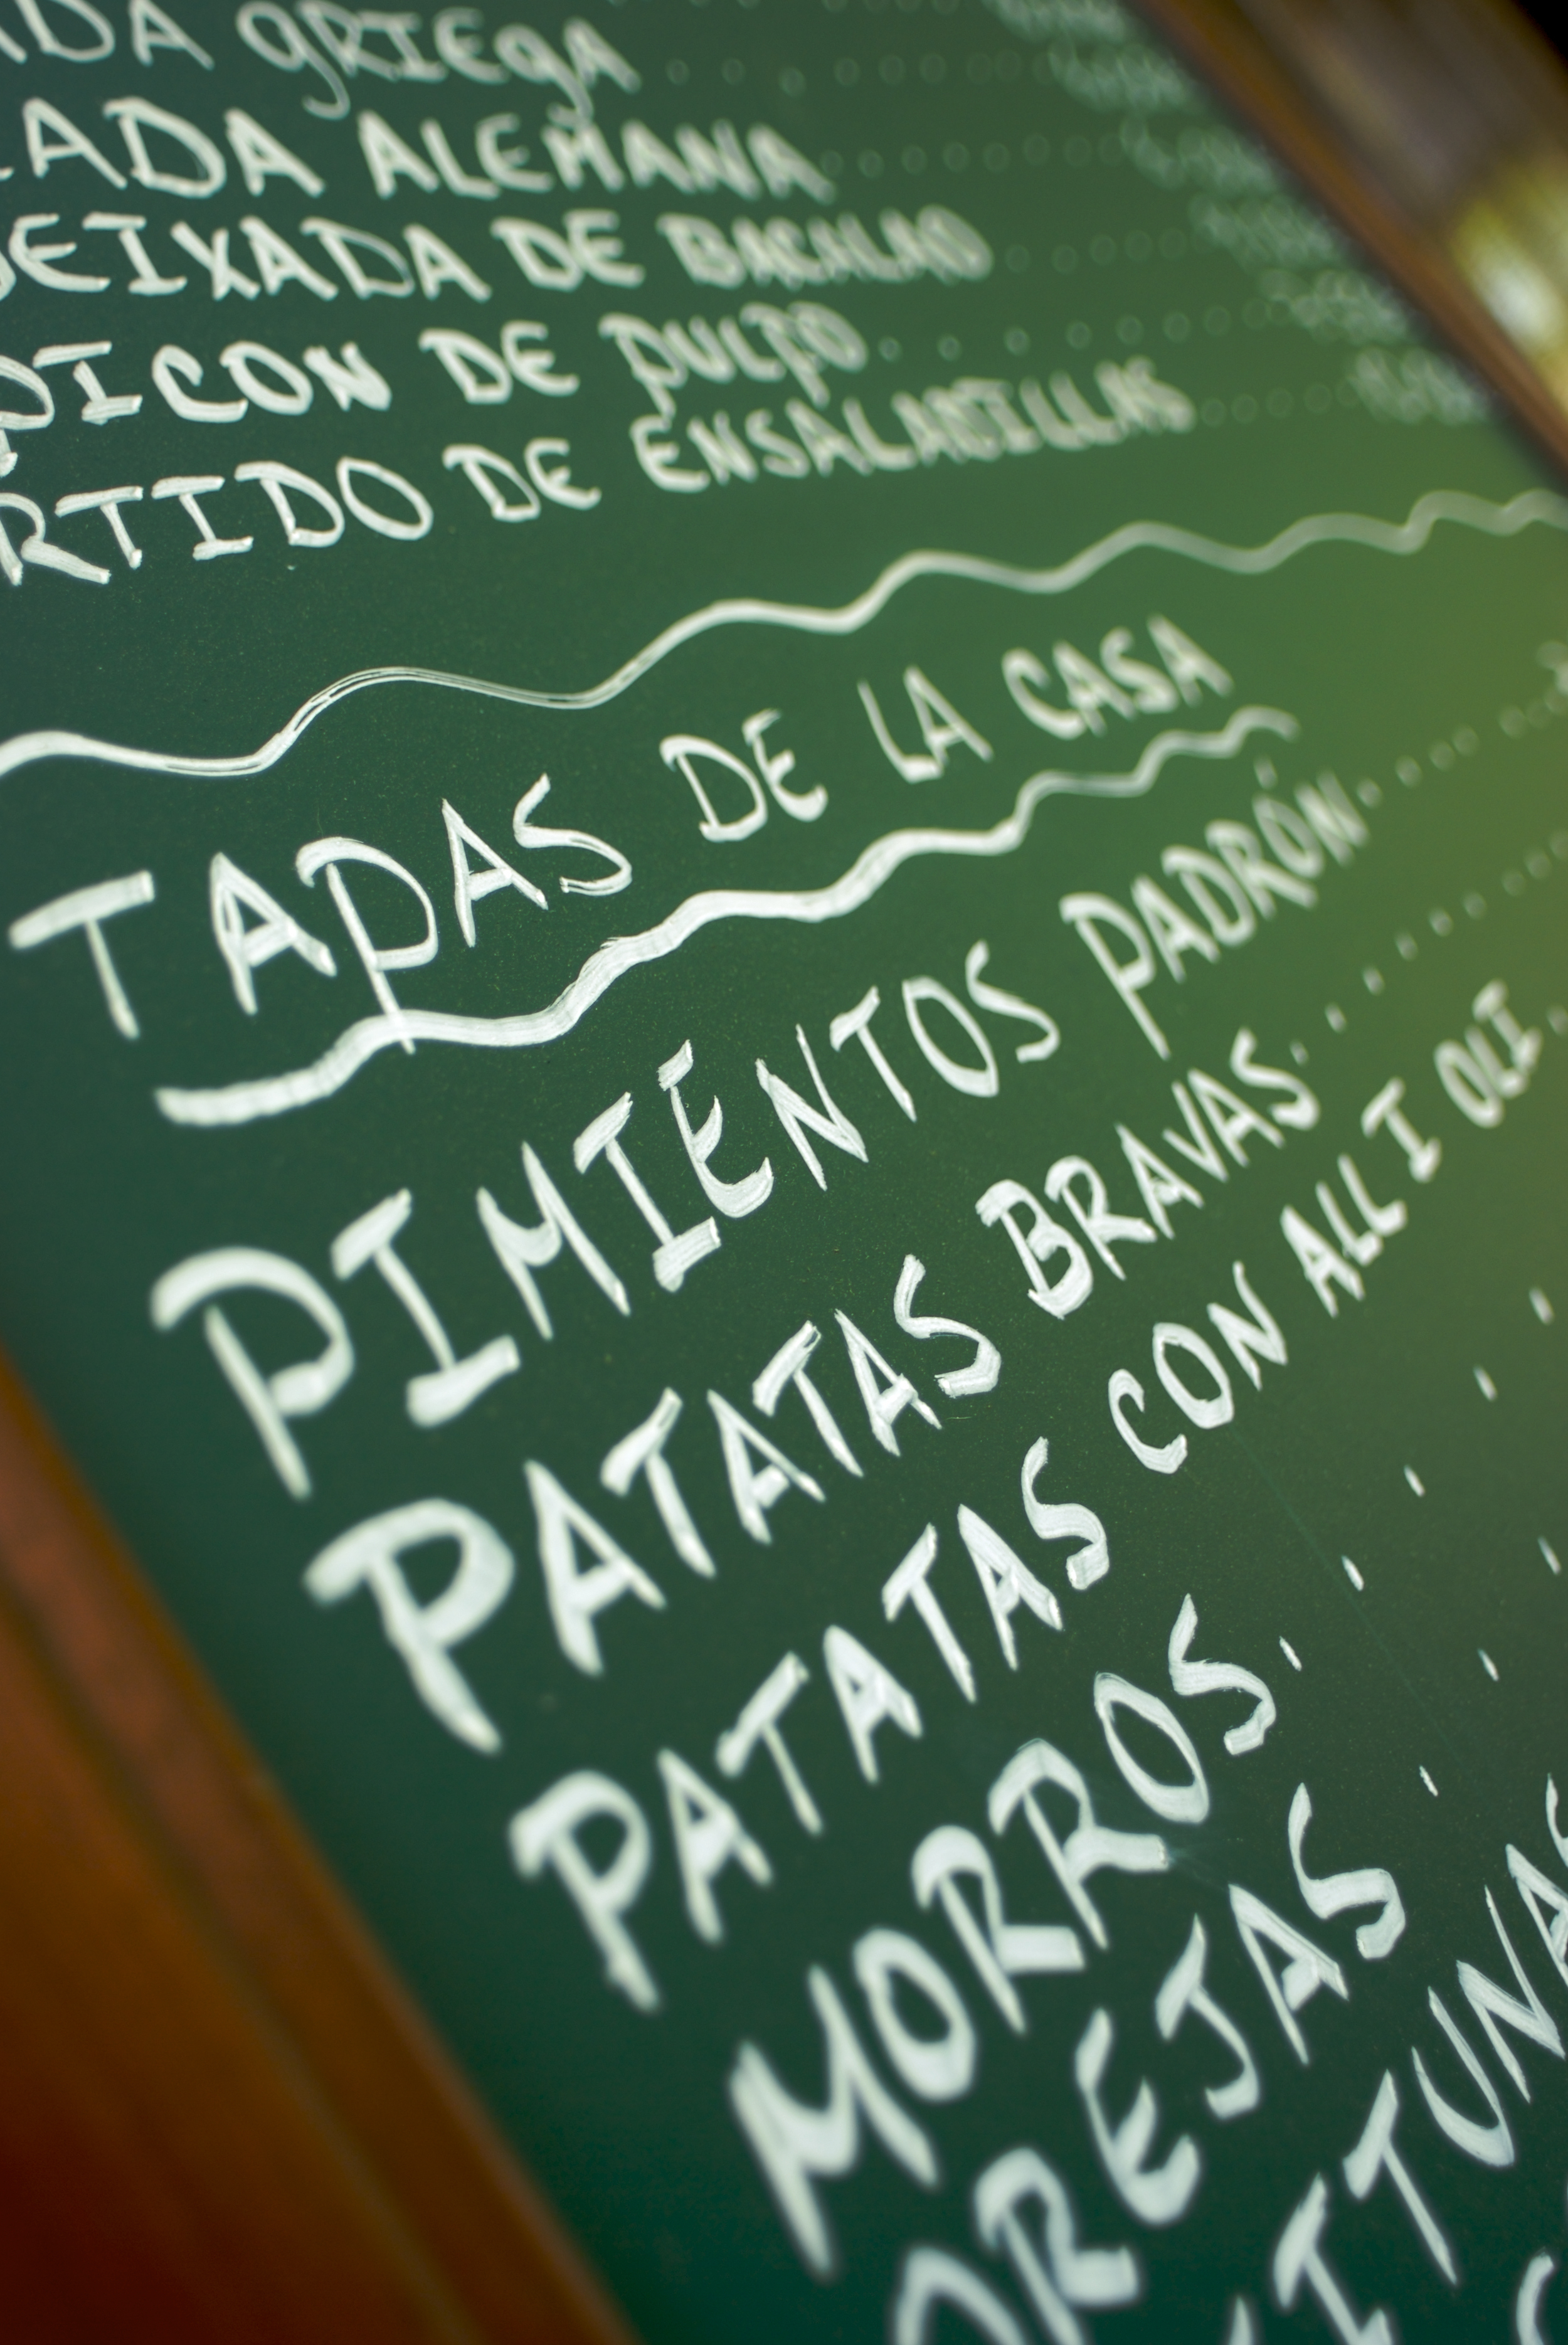 GRIEGA
ALEMANA
DE BACALAO
DE PULPO
DE ENSALADILLAS
TAPAS DE LA CASA
PIMIENTOS PADRÓN
PATATAS BRAVAS
PATATAS CON ALL I OLI
MORROS
OREJAS